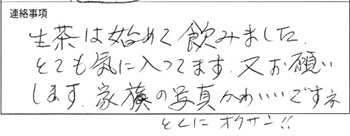 連絡事項
生茶は始めて飲みました
とても気に入ってます.又お願い
します.家族の写真かわいいですネ
とくにオクサン!!